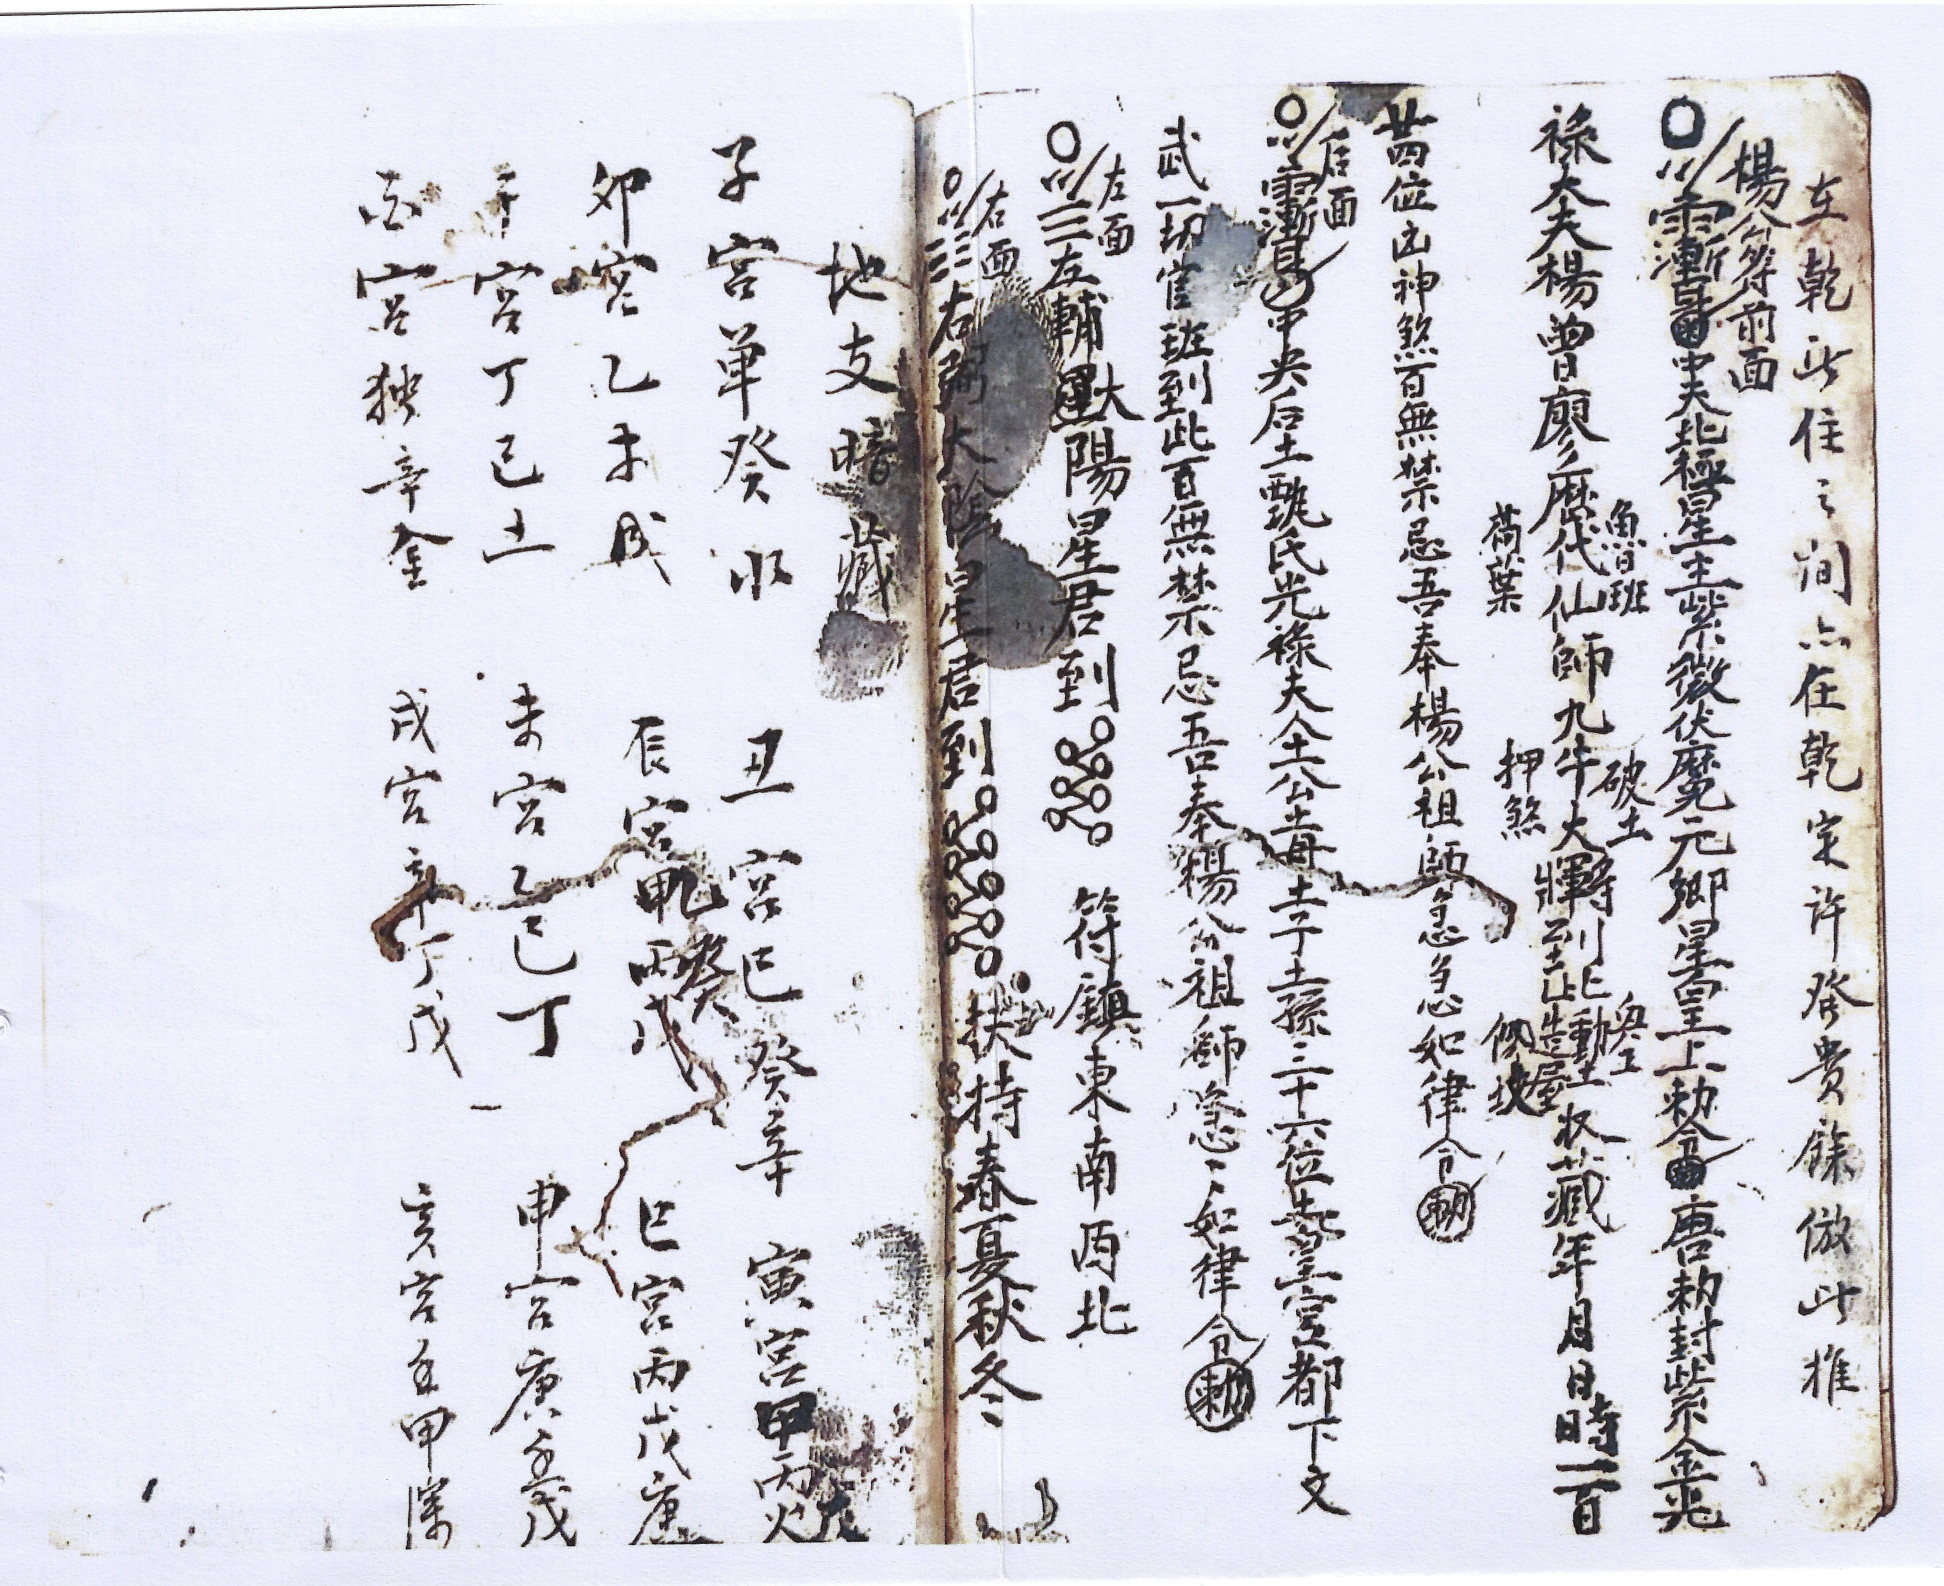 在乾此住之间亦在乾定許癸貴餘倣此推
楊公符前面
中天北極星主紫微伏魔元卿星皇上勅令唐勅封紫金光
祿大夫楊曾廖歷代仙師九牛大將到此動土造屋收藏年月日時一百
魯班
葛葉
破土
押煞
修墳
廿四位凶神煞百無禁忌吾奉楊公祖師急急如律令
后面
中央后土甄氏光祿夫人土公土母土子土孫二十六位土皇宮都下文
武一切官班到此百無禁忌吾奉楊公祖師急〻如律令
左面
左輔太陽星君到 符鎮東南西北
右面
右弼太陰星君到 扶持春夏秋冬
地支暗藏
子宮单癸水 丑宮己癸辛 寅宮甲丙戊
卯宮乙未成 辰宮乙癸戊 巳宮丙戊庚
午宮丁己土 未宮乙己丁 申宮庚壬戊
酉宮独辛金 戌宮辛丁戊 亥宮壬甲深